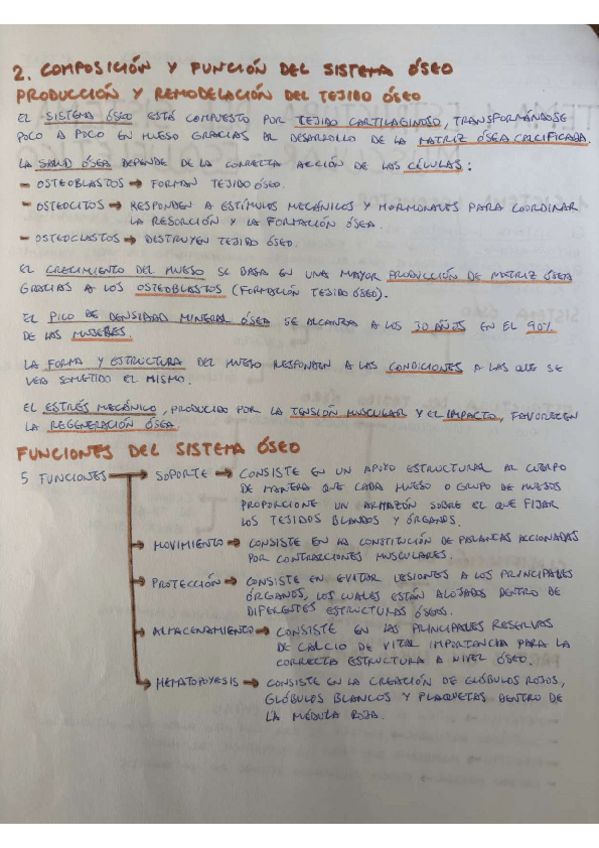 2. COMPOSICIÓN Y FUNCIÓN DEL SISTEMA ÓSEO
PRODUCCIÓN Y REMODELACIÓN DEL TEJIDO ÓSEO
EL SISTEMA ÓSEO ESTÁ COMPUESTO POR TEJIDO CARTILAGINOSO, TRANSFORMÁNDOSE
POCO A POCO EN HUESO GRACIAS AL DESARROLLO DE LA MATRIZ ÓSEA CALCIFICADA.
LA SALUD ÓSEA DEPENDE DE LA CORRECTA ACCIÓN DE LAS CÉLULAS:
- OSTEOBLASTOS → FORMAN TEJIDO ÓSEO.
- OSTEOCITOS → RESPONDEN A ESTÍMULOS MECÁNICOS Y HORMONALES PARA COORDINAR
LA RESORCIÓN Y LA FORMACIÓN ÓSEA
- OSTEOCLASTOS → DESTRUYEN TEJIDO ÓSEO.
EL CRECIMIENTO DEL HUESO SE BASA EN UNA MAYOR PRODUCCIÓN DE MATRIZ ÓSEA
GRACIAS A LOS OSTEOBLASTOS (FORMACIÓN TEJIDO ÓSEO).
EL PICO DE DENSIDAD MINERAL ÓSEA SE ALCANZA A LOS 30 AÑOS EN EL 90%
DE LAS MUJERES.
LA FORMA Y ESTRUCTURA DEL HUESO RESPONDEN A LAS CONDICIONES A LAS QUE SE
VEA SOMETIDO EL MISMO.
EL ESTRÉS MECÁNICO, PRODUCIDO POR LA TENSIÓN MUSCULAR Y EL IMPACTO, FAVORECEN
LA REGENERACIÓN ÓSEA.
FUNCIONES DEL SISTEMA ÓSEO
5 FUNCIONES → SOPORTE → CONSISTE EN UN APOYO ESTRUCTURAL AL CUERPO
DE MANERA QUE CADA HUESO O GRUPO DE HUESOS
PROPORCIONE UN ARMAZÓN SOBRE EL QUE FIJAR
LOS TEJIDOS BLANDOS Y ÓRGANOS.
→ MOVIMIENTO → CONSISTE EN LA CONSTITUCIÓN DE PALANCAS ACCIONADAS
POR CONTRACCIONES MUSCULARES.
→ PROTECCIÓN → CONSISTE EN EVITAR LESIONES A LOS PRINCIPALES
ÓRGANOS, LOS CUALES ESTÁN ALOJADOS DENTRO DE
DIFERENTES ESTRUCTURAS ÓSEAS.
→ ALMACENAMIENTO → CONSISTE EN LAS PRINCIPALES RESERVAS
DE CALCIO DE VITAL IMPORTANCIA PARA LA
CORRECTA ESTRUCTURA A NIVEL ÓSEO.
→ HEMATOPOYESIS → CONSISTE EN LA CREACIÓN DE GLÓBULOS ROJOS,
GLÓBULOS BLANCOS Y PLAQUETAS DENTRO DE
LA MÉDULA ROJA.